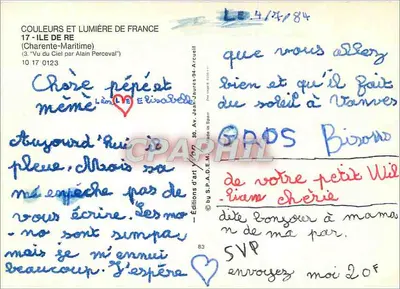 COULEURS ET LUMIÈRE DE FRANCE
17 - ILE DE RE
(Charente-Maritime)
(3. "Vu du Ciel par Alain Perceval")
10 17 0123
Le 4/7/84
Chère pépé et
mémé Elisabelle
Aujourd'hui il
pleue. Mais sa
m'enpèche pas de
vous écrire. Les mo-
-no sont sumpa,
mais je m'ennui
beaucoup. J'espère
que vous allez
bien et qu'il fait
du soleil à Vanves
GROS Bisous
de votre petit Wil-
-liam chérie
dite bonjour à mama
n de ma par.
SVP
envoyez moi 20F
82
© by S.P.A.D.E.M.
CPARAMA